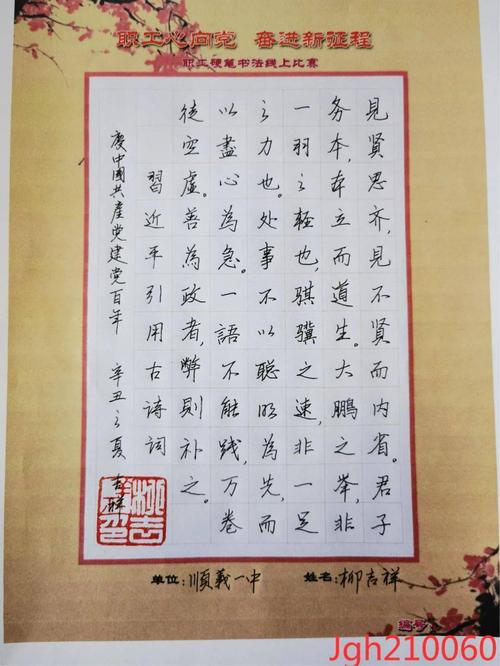 职工心向党 奋进新征程
职工硬笔书法线上比赛
見贤思齐,見不贤而内省。君子
务本,本立而道生。大鹏之举,非
一羽之轻也,骐骥之速,非一足
之力也。处事不以聪明為先,而
以盡心為急。一語不能践,万卷
徒空虛。善為政者,弊則补之。
習近平引用古詩词
慶中國共產党建党百年 辛丑之夏 吉祥
单位:順義一中 姓名:柳吉祥
编号:
Jgh210060